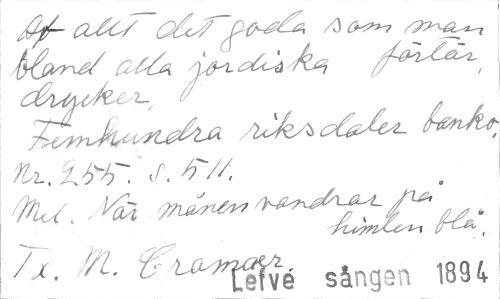 Af allt det goda som man
bland alla jordiska förtär,
drycker,
Femhundra riksdaler banko,
Nr. 255. s. 511.
Mel. När månen vandrar på
himlen blå.
Tx. M. Cramær.
Lefve sången 1894